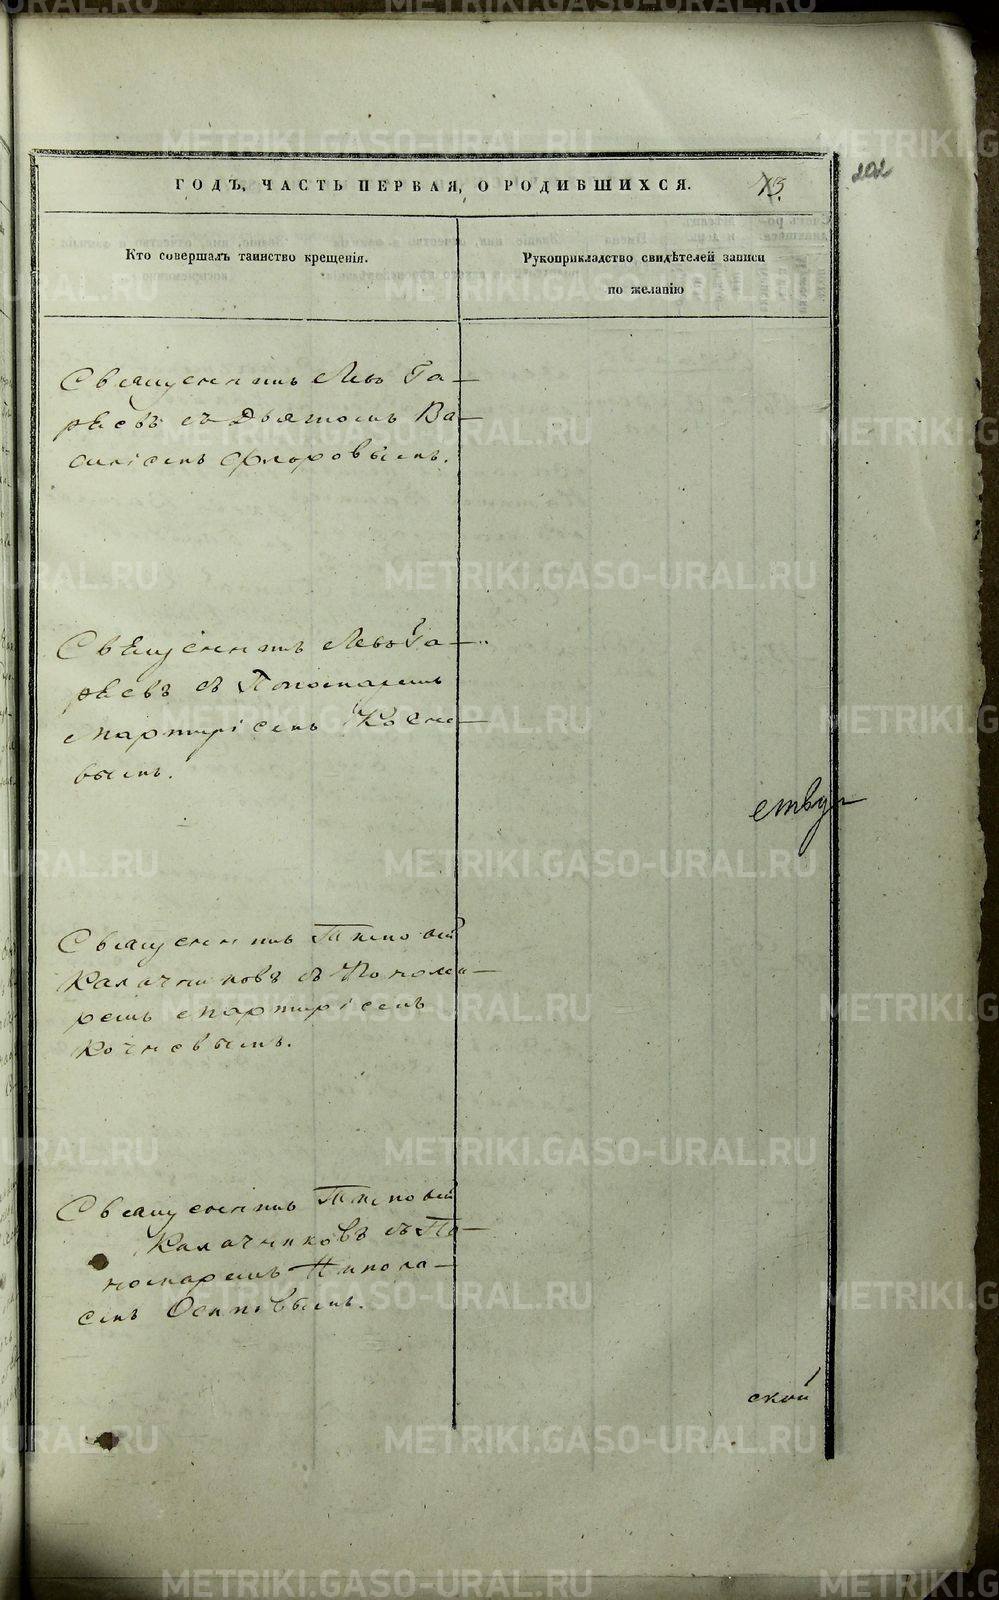 ГОДЪ, ЧАСТЬ ПЕРВАЯ, О РОДИВШИХСЯ.
13.
202
Кто совершалъ таинство крещенія.
Рукоприкладство свидѣтелей записи
по желанію
Священникъ Левъ Га-
ряевъ съ Дьякомъ Ва-
силіемъ Флоровымъ.
Священникъ Левъ Га-
ряевъ съ Пономаремъ
Мартиріемъ
вымъ.
Священникъ Тимофей
Калачниковъ съ Понома-
ремъ Мартиріемъ
Священникъ Тимофей
Калачниковъ съ По-
номаремъ Никола-
емъ Осиповымъ.
ской
METRIKI.GASO-URAL.RU